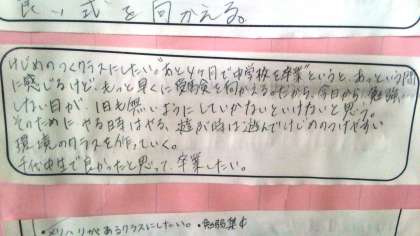 良い式を向かえる。
けじめのつくクラスにしたい。"あと4ヶ月で中学校を卒業"というと、あっという間
に感じるけど、もっと早くに受験を向かえる。だから、今日から勉強
しない日が、1日も無いようにしていかないといけないと思う。
そのために、やる時はやる、遊ぶ時は遊んでけじめのつけやすい
環境のクラスを作っていく。
千代中生で良かったと思って、卒業したい。
メリハリがあるクラスにしたい。・勉強集中